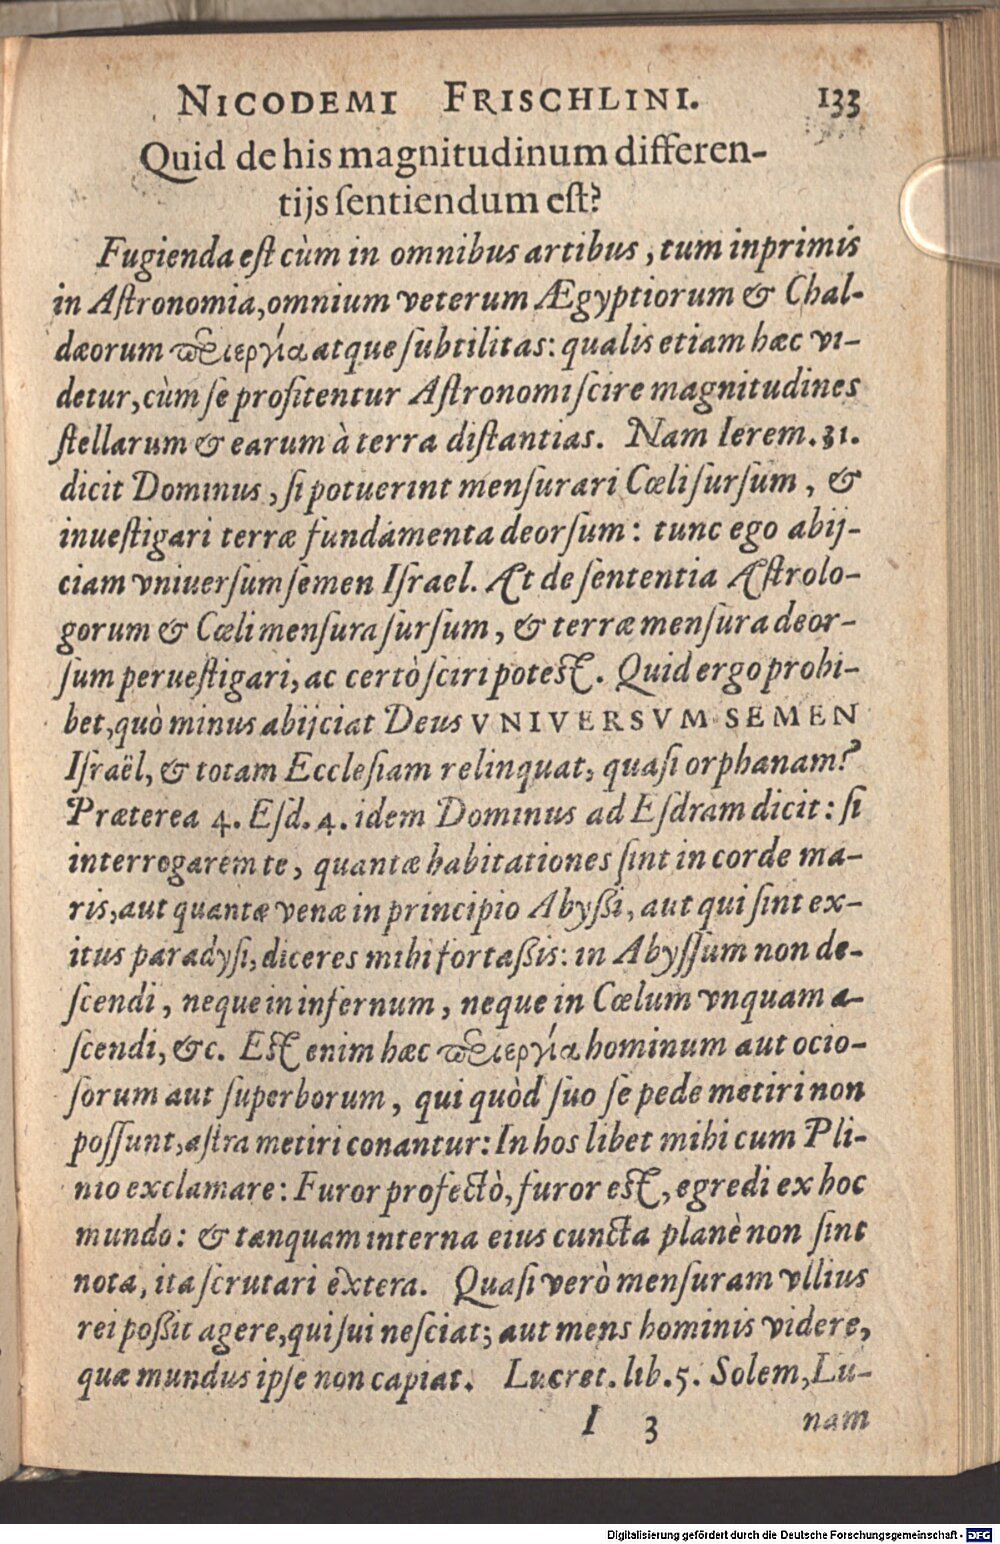 NICODEMI FRISCHLINI. 133
Quid de his magnitudinum differen-
tijs ſentiendum eſt?
Fugienda eſt cùm in omnibus artibus, tum inprimis
in Aſtronomia, omnium veterum Ægyptiorum & Chal-
dæorum περιεργία atque ſubtilitas: qualis etiam hæc vi-
detur, cùm ſe profitentur Aſtronomi ſcire magnitudines
ſtellarum & earum à terra diſtantias. Nam Ierem. 31.
dicit Dominus, ſi potuerint menſurari Cœli ſurſum, &
inueſtigari terræ fundamenta deorſum: tunc ego abij-
ciam vniuerſum ſemen Iſrael. At de ſententia Aſtrolo-
gorum & Cœli menſura ſurſum, & terræ menſura deor-
ſum perueſtigari, ac certò ſciri poteſt. Quid ergo prohi-
bet, quò minus abijciat Deus VNIVERSVM SEMEN
Iſraël, & totam Eccleſiam relinquat, quaſi orphanam?
Præterea 4. Eſd. 4. idem Dominus ad Eſdram dicit: ſi
interrogarem te, quantæ habitationes ſint in corde ma-
ris, aut quantæ venæ in principio Abyßi, aut qui ſint ex-
itus paradyſi, diceres mihi fortaßis: in Abyſſum non de-
ſcendi, neque in infernum, neque in Cœlum vnquam a-
ſcendi, &c. Eſt enim hæc περιεργία hominum aut ocio-
ſorum aut ſuperborum, qui quòd ſuo ſe pede metiri non
poſſunt, aſtra metiri conantur: In hos libet mihi cum Pli-
nio exclamare: Furor profectò, furor eſt, egredi ex hoc
mundo: & tanquam interna eius cuncta planè non ſint
nota, ita ſcrutari extera. Quaſi verò menſuram vllius
rei poßit agere, qui ſui neſciat; aut mens hominis videre,
quæ mundus ipſe non capiat. Lucret. lib. 5. Solem, Lu-
I 3 nam
Digitalisierung gefördert durch die Deutsche Forschungsgemeinschaft - DFG